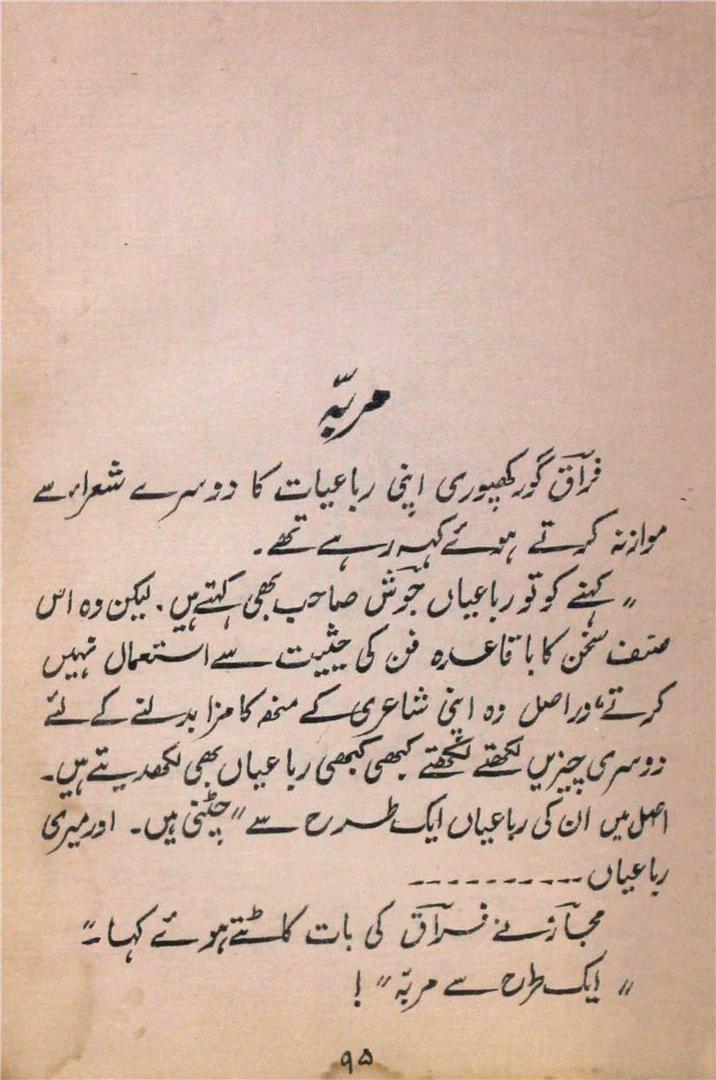 مربّہ
فراقؔ گورکھپوری اپنی رباعیات کا دوسرے شعراء سے
موازنہ کرتے ہوئے کہہ رہے تھے۔
"کہنے کو تو رباعیاں جوشؔ صاحب بھی کہتے ہیں۔ لیکن وہ اس
صنف سخن کا باقاعدہ فن کی حیثیت سے استعمال نہیں
کرتے، دراصل وہ اپنی شاعری کے منھ کا مزا بدلنے کے لئے
دوسری چیزیں لکھتے لکھتے کبھی کبھی رباعیاں بھی لکھ دیتے ہیں۔
اصل میں ان کی رباعیاں ایک طرح سے "چٹنی ہیں۔ اور میری
رباعیاں ----------
مجازؔ نے فراقؔ کی بات کاٹتے ہوئے کہا۔"
"ایک طرح سے مربّہ" !
۹۵